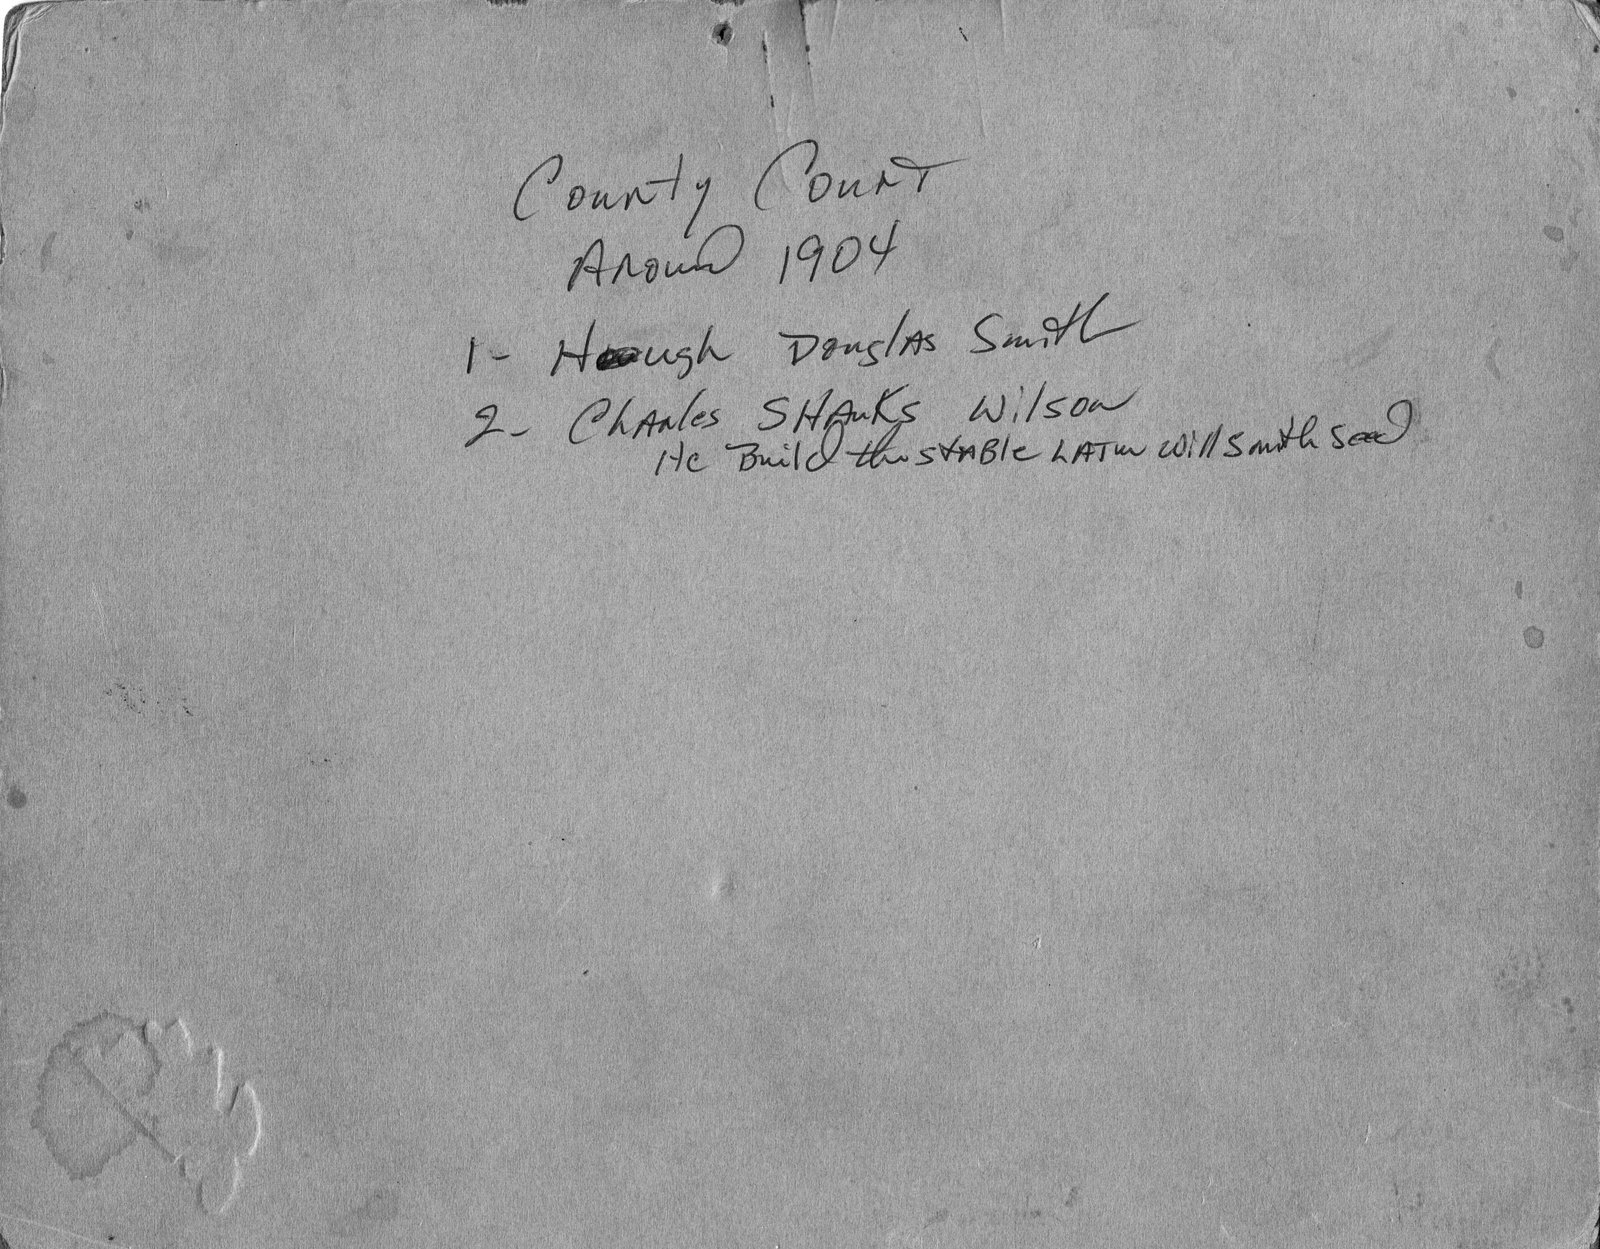 County Court
Around 1904
1- Hough Douglas Smith
2- Charles SHAnKs Wilson
He Build the STABle LATer Will Smith Seed